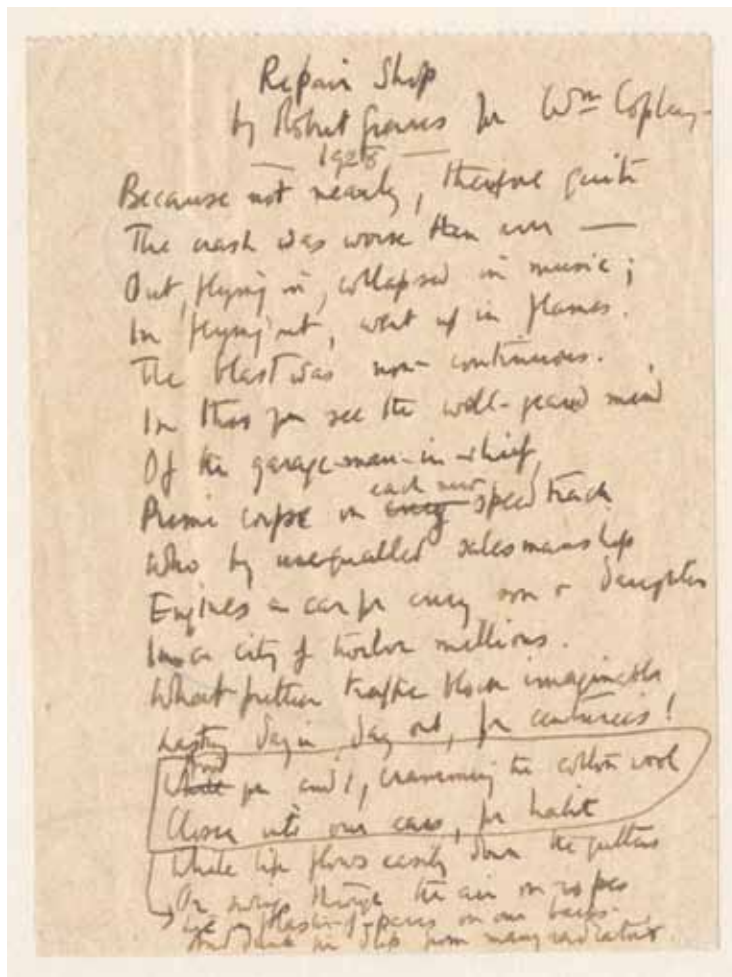 Repair Shop
by Robert Graves for Wm Copley
1928
Because not nearly, therefore quite
The crash was worse than ever —
Out, flying in, collapsed in music;
In flying out, went up in flames.
The blast was non-continuous.
In this you see the well-geared mind
Of the garage-man-in-chief,
each new
Prime corpse on every speed track
Who by unequalled salesmanship
Engines a car for every son or daughter
In a city of twelve millions.
What further traffic block imaginable
Lasting day in, day out, for centuries!
And
While you and I, cramming the cotton wool
Closer into our ears, for habit
While life flows easily down the gutters
Or swings through the air on ropes
Lye on our backs
And drink from many radiators.